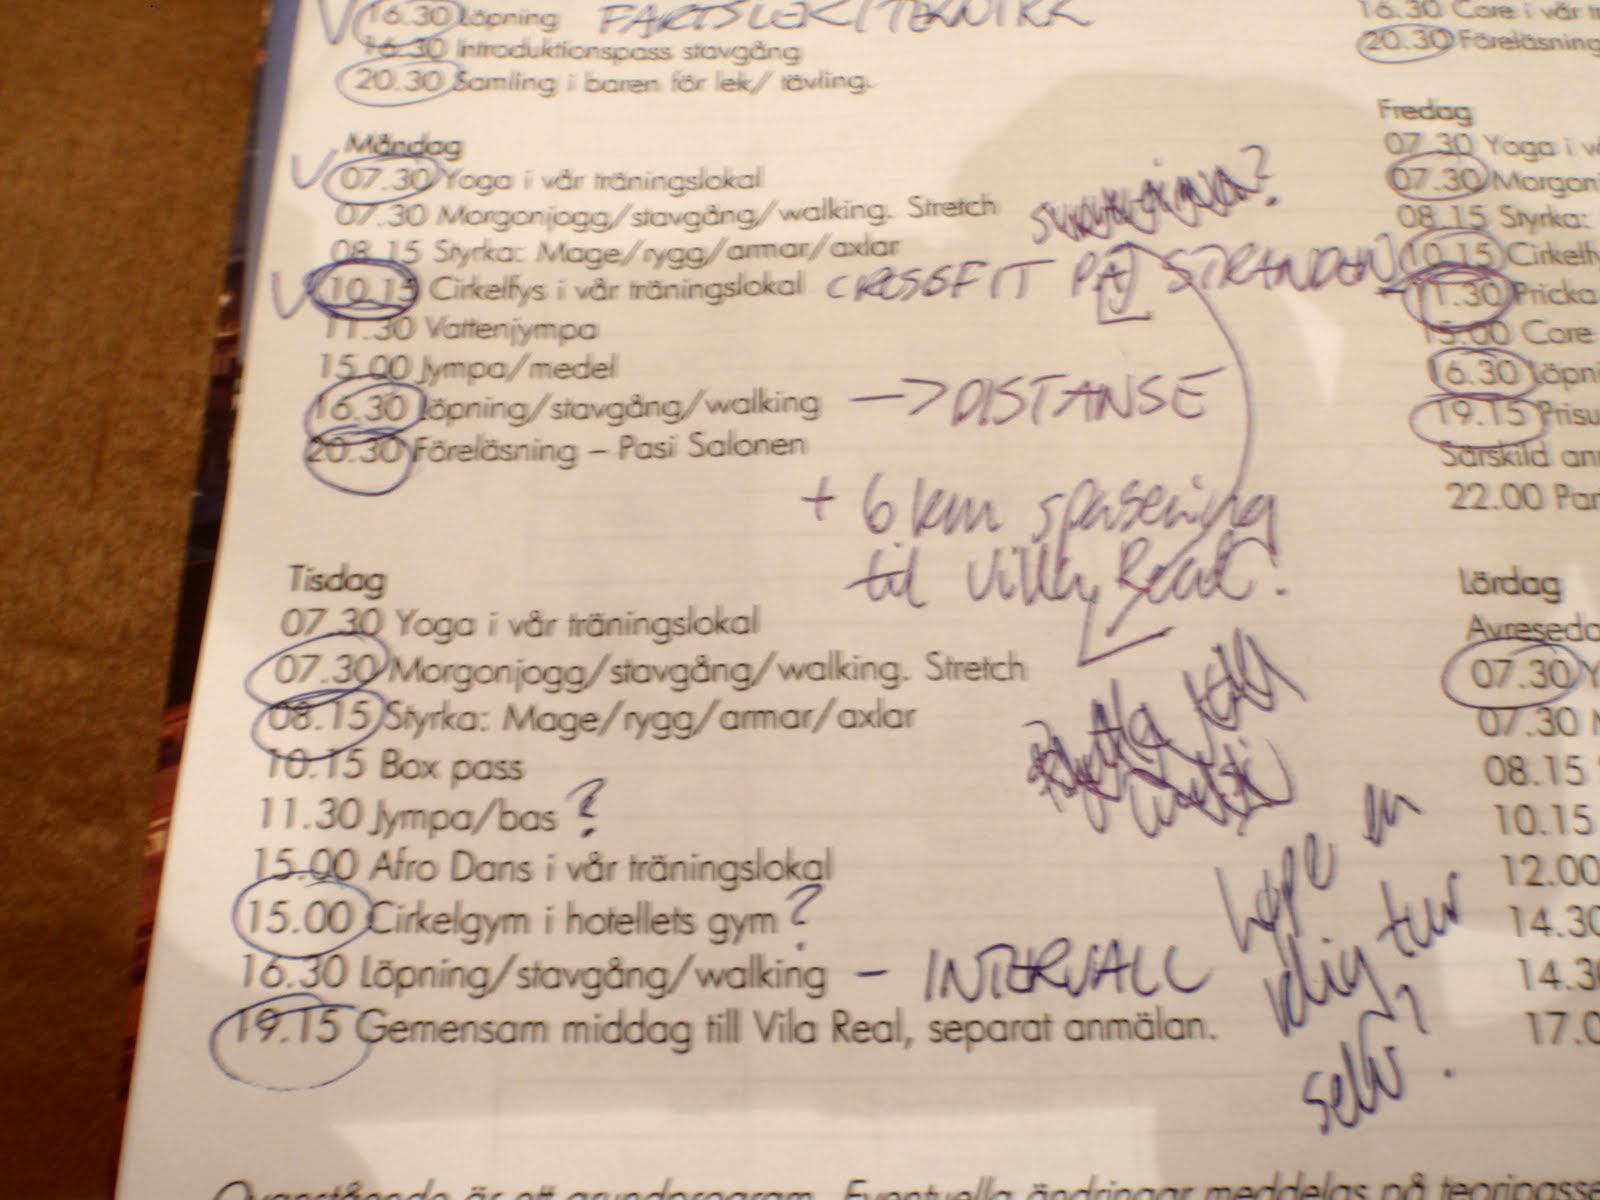 16.30 Löpning FARTSLEK/TEKNIKK
16.30 Introduktionspass stavgång
20.30 Samling i baren för lek/ tävling.
Måndag
07.30 Yoga i vår träningslokal
07.30 Morgonjogg/stavgång/walking. Stretch
08.15 Styrka: Mage/rygg/armar/axlar
10.15 Cirkelfys i vår träningslokal CROSSFIT PÅ STRANDEN
11.30 Vattenjympa
15.00 Jympa/medel
16.30 Löpning/stavgång/walking —> DISTANSE
20.30 Föreläsning – Pasi Salonen
+ 6 km spasering
til Villa Real!
Tisdag
07.30 Yoga i vår träningslokal
07.30 Morgonjogg/stavgång/walking. Stretch
08.15 Styrka: Mage/rygg/armar/axlar
10.15 Box pass
11.30 Jympa/bas ?
15.00 Afro Dans i vår träningslokal
15.00 Cirkelgym i hotellets gym ?
16.30 Löpning/stavgång/walking – INTERVALL
19.15 Gemensam middag till Vila Real, separat anmälan.
en
tur
selv?
Ovanstående är ett grundprogram. Eventuella ändringar meddelas på
16.30 Core i vår
20.30 Föreläsning
Fredag
07.30 Yoga i
07.30
08.15 Styrka:
10.15
11.30 Pricka
15.00 Core
16.30
19.15
Särskild
22.00
Lördag
07.30
07.30
08.15
10.15
12.00
14.30